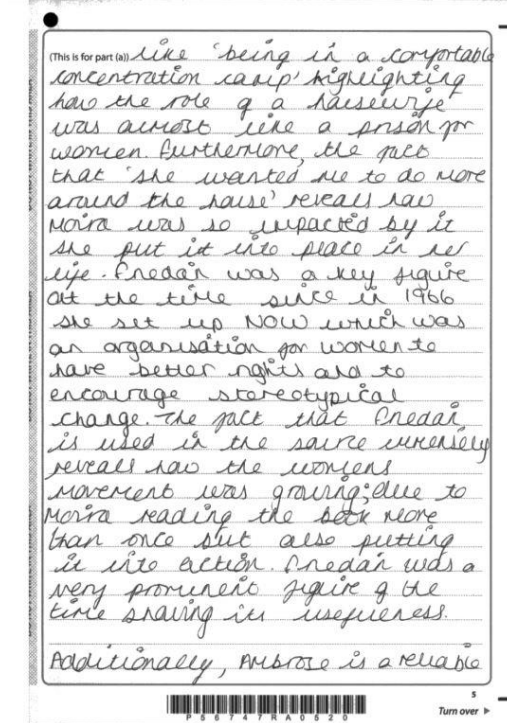 (This is for part (a)) like 'being in a comfortable
concentration camp' highlighting
how the role of a housewife
was almost like a prison for
women. Furthermore, the fact
that 'she wanted me to do more
around the house' reveals how
Moira was so impacted by it
she put it into place in her
life. Friedan was a key figure
at the time since in 1966
she set up NOW which was
an organisation for women to
have better rights and to
encourage stereotypical
change. The fact that Friedan
is used in the source immensely
reveals how the womens
movement was growing; due to
Moira reading the book more
than once but also putting
it into action. Friedan was a
very prominent figure of the
time showing its usefulness.
Additionally, Ambrose is a reliable
5
P56747RA052
Turn over